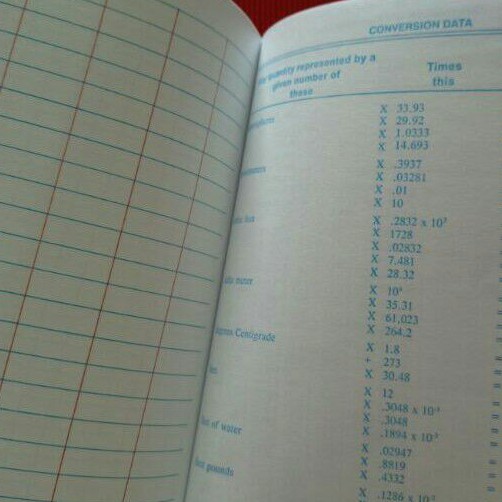 CONVERSION DATA
quantity represented by a
given number of
these
Times
this
X 33.93
X 29.92
X 1.0333
X 14.693
X .3937
X .03281
X .01
X 10
X .2832 x 10⁵
X 1728
X .02832
X 7.481
X 28.32
X 10⁶
X 35.31
X 61,023
X 264.2
Centigrade
X 1.8
+ 273
X 30.48
X 12
X .3048 x 10⁻³
X .3048
X .1894 x 10⁻³
of water
X .02947
X .8819
X .4332
pounds
X .1286 x 10⁻²